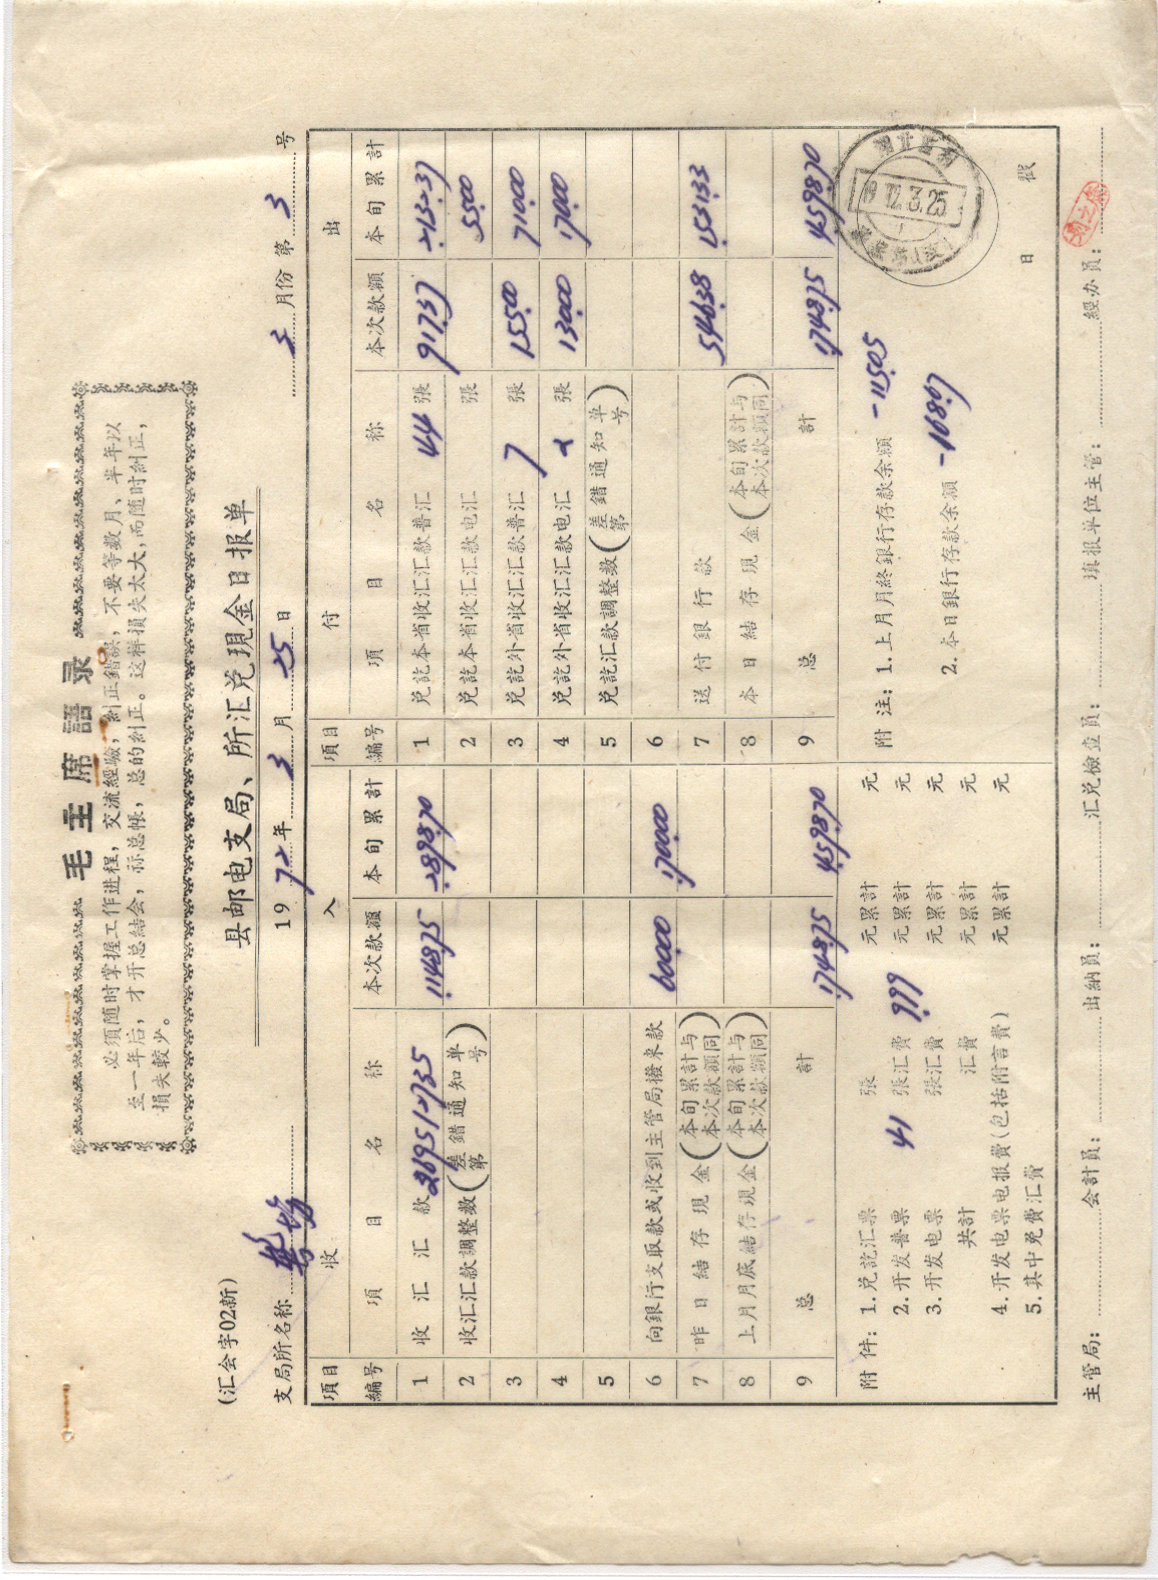 毛主席語录
必须随时掌握工作进程，交流經驗，糾正錯誤，不要等数月、半年以
至一年后，才开总結会，祘总帐，总的糾正。这样損失太大，而随时糾正，
損失較少。
(汇会字02新)
县邮电支局、所汇兑現金日报单
支局所名称 1972年3月25日 3月份第3号
收入 付出
項目編号 項目名称 本次款額 本旬累計 項目編号 項目名称 本次款額 本旬累計
1 收汇汇款 26951-2735 1148.75 2898.70 1 兑訖本省收汇汇款普汇 44張 917.37 2137.37
2 收汇汇款調整数(差錯通知单第号) 2 兑訖本省收汇汇款电汇 張 55.00
3 3 兑訖外省收汇汇款普汇 7張 155.00 710.00
4 4 兑訖外省收汇汇款电汇 2張 130.00 170.00
5 5 兑訖汇款調整数(差錯通知单第号)
6 向銀行支取款或收到主管局撥来款 600.00 1700.00 6
7 昨日結存現金(本旬累計与本次款額同) 7 送付銀行款 546.38 1531.33
8 上月月底結存現金(本旬累計与本次款額同) 8 本日結存現金(本旬累計与本次款額同)
9 总計 1748.75 4598.70 9 总計 1748.75 4598.70
附件：1.兑訖汇票 張 元累計 元
2.开发普票 41 張汇費 元累計 元
3.开发电票 張汇費 元累計 元
共計 汇費 元累計 元
4.开发电票电报費(包括附言費) 元累計 元
5.其中免費汇費
附注：1.上月月終銀行存款余額 -115.05
2.本日銀行存款余額
日戳
1972.3.25
主管局： 会計員： 出納員： 汇兑檢查員： 填报单位主管： 經办員：